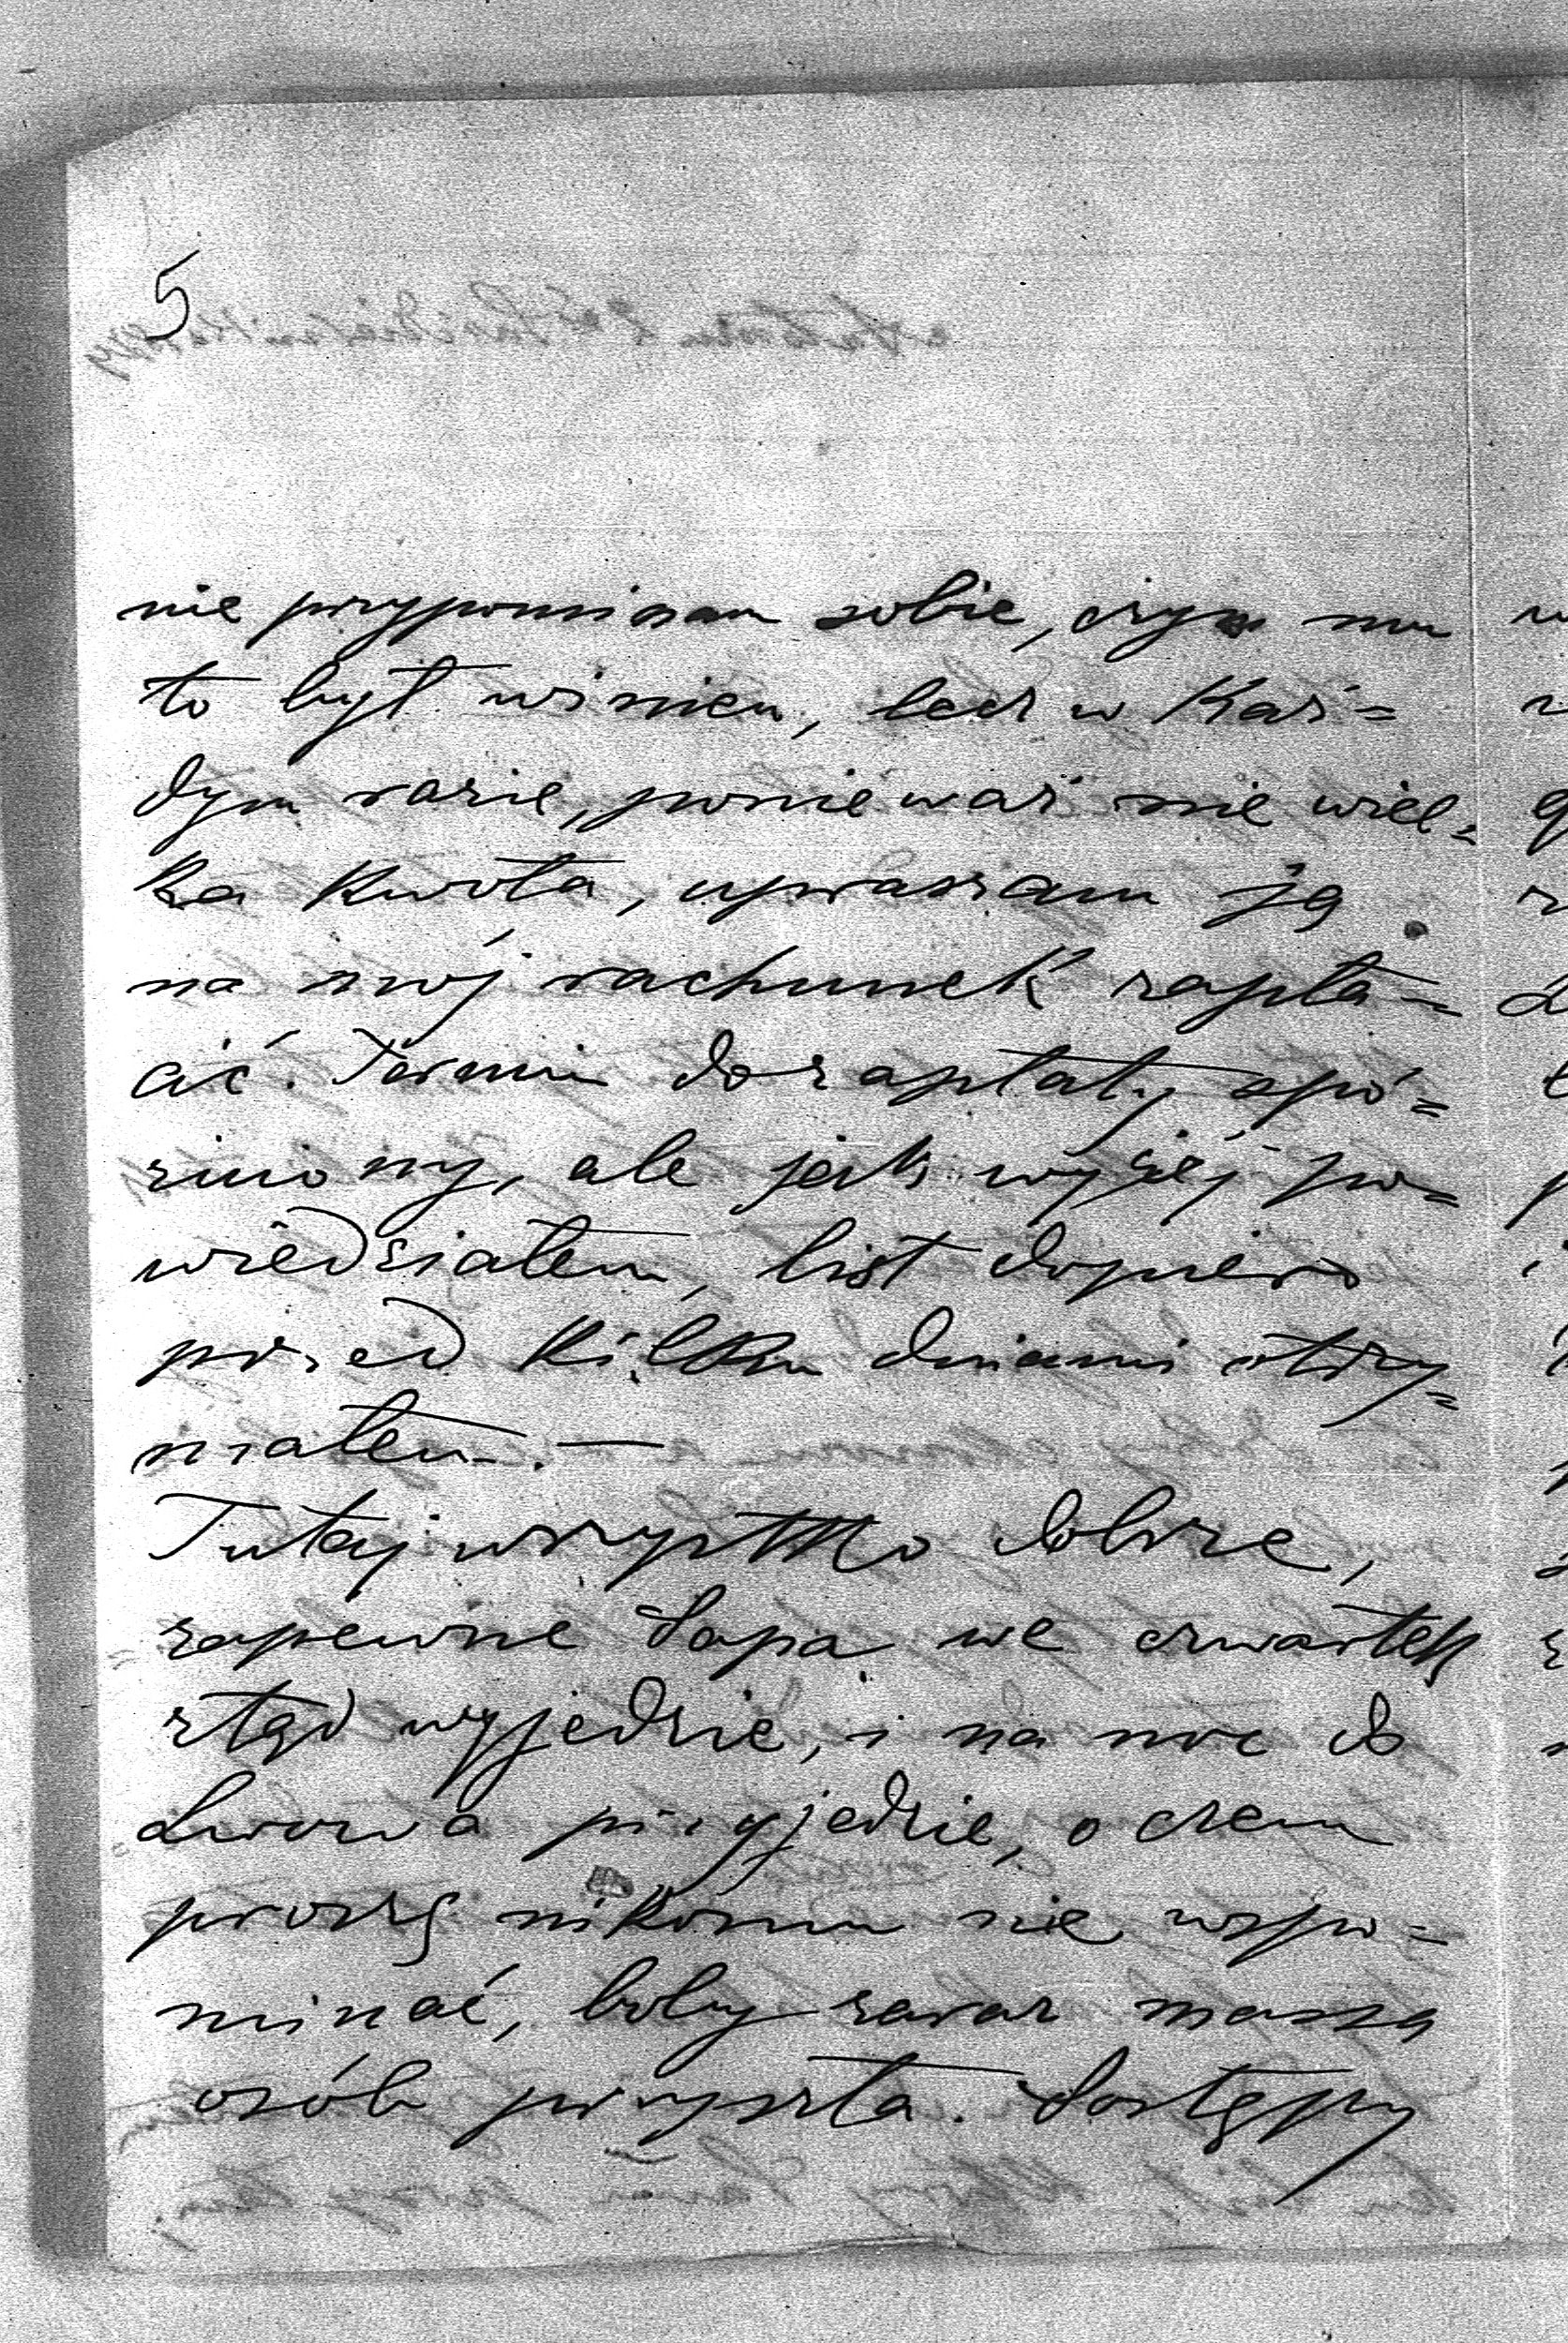 5
nie przypominam sobie, czym mu
to był winien, lecz w każ=
dym razie, ponieważ nie wiel=
ka kwota, upraszam ją
na mój rachunek zapła=
cić. Termin do zapłaty spó=
źniony, ale jak wyżej po=
wiedziałem, list dopiero
przed kilku dniami otrzy=
małem. —
Tutaj wszystko dobrze,
zapewne Papa we czwartek
ztąd wyjedzie, i na noc do
Lwowa przyjedzie, o czem
proszę nikomu nie wspo=
minać, boby zaraz massa
osób przyszła. Postępy